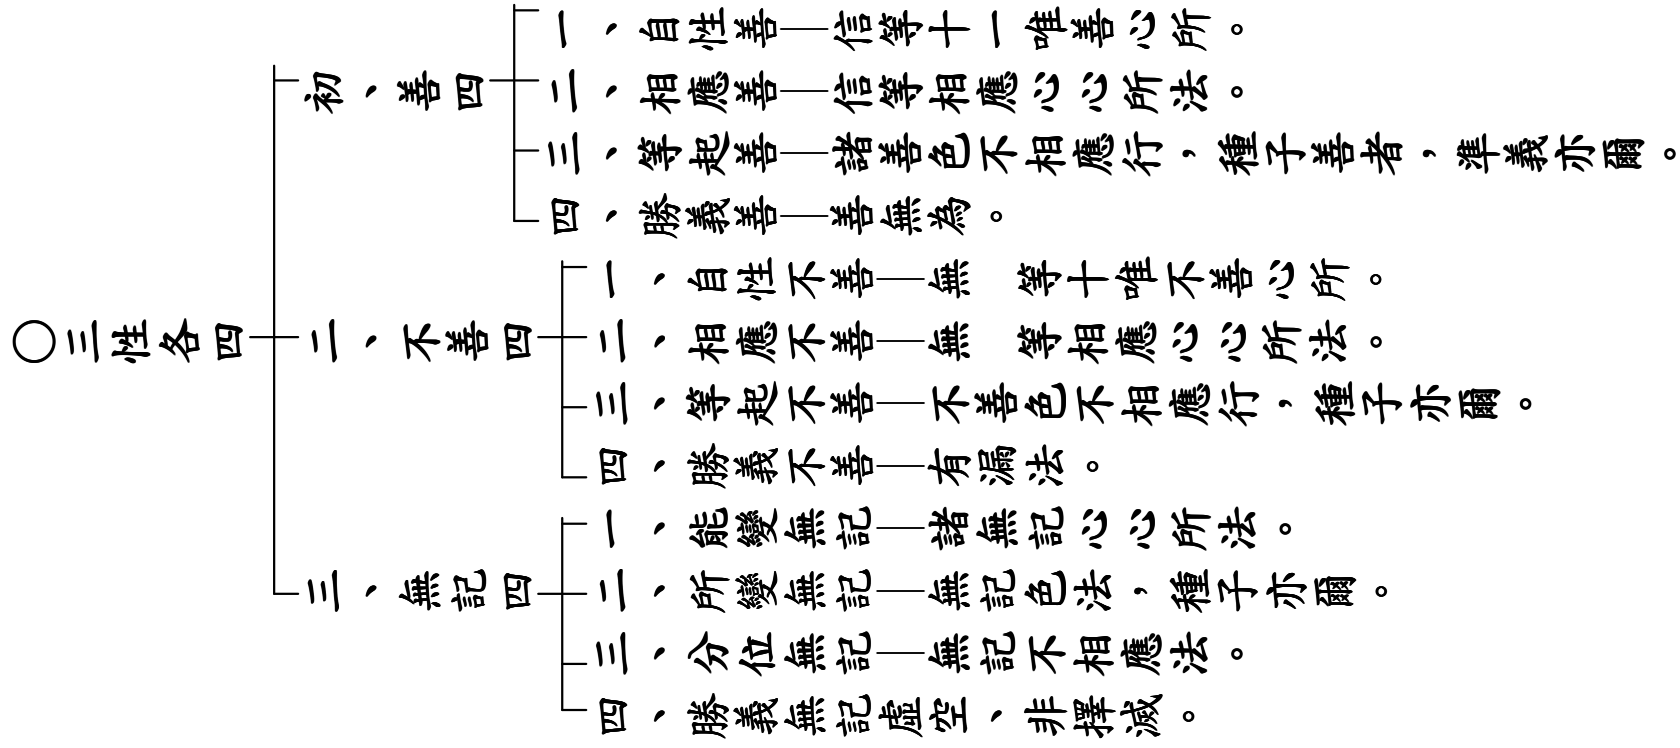 ○三性各四
初、善四
一、自性善—信等十一唯善心所。
二、相應善—信等相應心心所法。
三、等起善—諸善色不相應行，種子善者，準義亦爾。
四、勝義善—善無為。
二、不善四
一、自性不善—無　等十唯不善心所。
二、相應不善—無　等相應心心所法。
三、等起不善—不善色不相應行，種子亦爾。
四、勝義不善—有漏法。
三、無記四
一、能變無記—諸無記心心所法。
二、所變無記—無記色法，種子亦爾。
三、分位無記—無記不相應法。
四、勝義無記虛空、非擇滅。